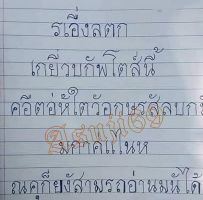 รเอื่งลตก
เกยี่วบกัพโตส์นี้
คอืตอ่ห้ใตวัอกษรสัลบกั
มกาคแ่ไนห
ณคุก็ยงัสามรถอ่านมนัได้